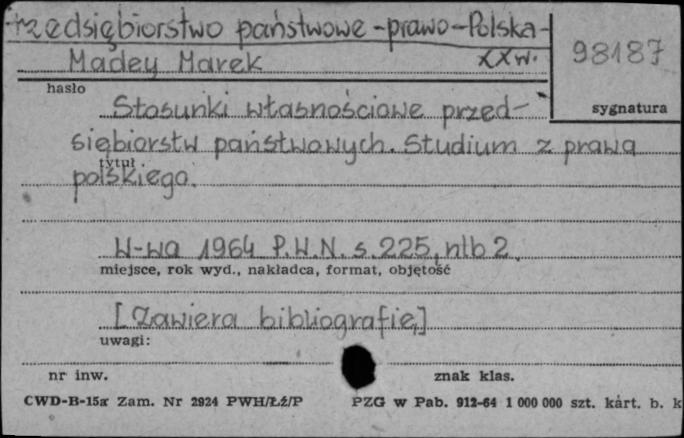 Przedsiębiorstwo państwowe - prawo - Polska -
XX w.
Madey Marek
98187
hasło
sygnatura
Stosunki własnościowe przed-
siębiorstw państwowych. Studium z prawa
tytuł
polskiego.
W-wa 1964 P.W.N. s. 225, nlb 2.
miejsce, rok wyd., nakładca, format, objętość
[Zawiera bibliografię]
uwagi:
nr inw.
znak klas.
CWD-B-15a Zam. Nr 2924 PWH/Łź/P
PZG w Pab. 912-64 1 000 000 szt. kart. b. k